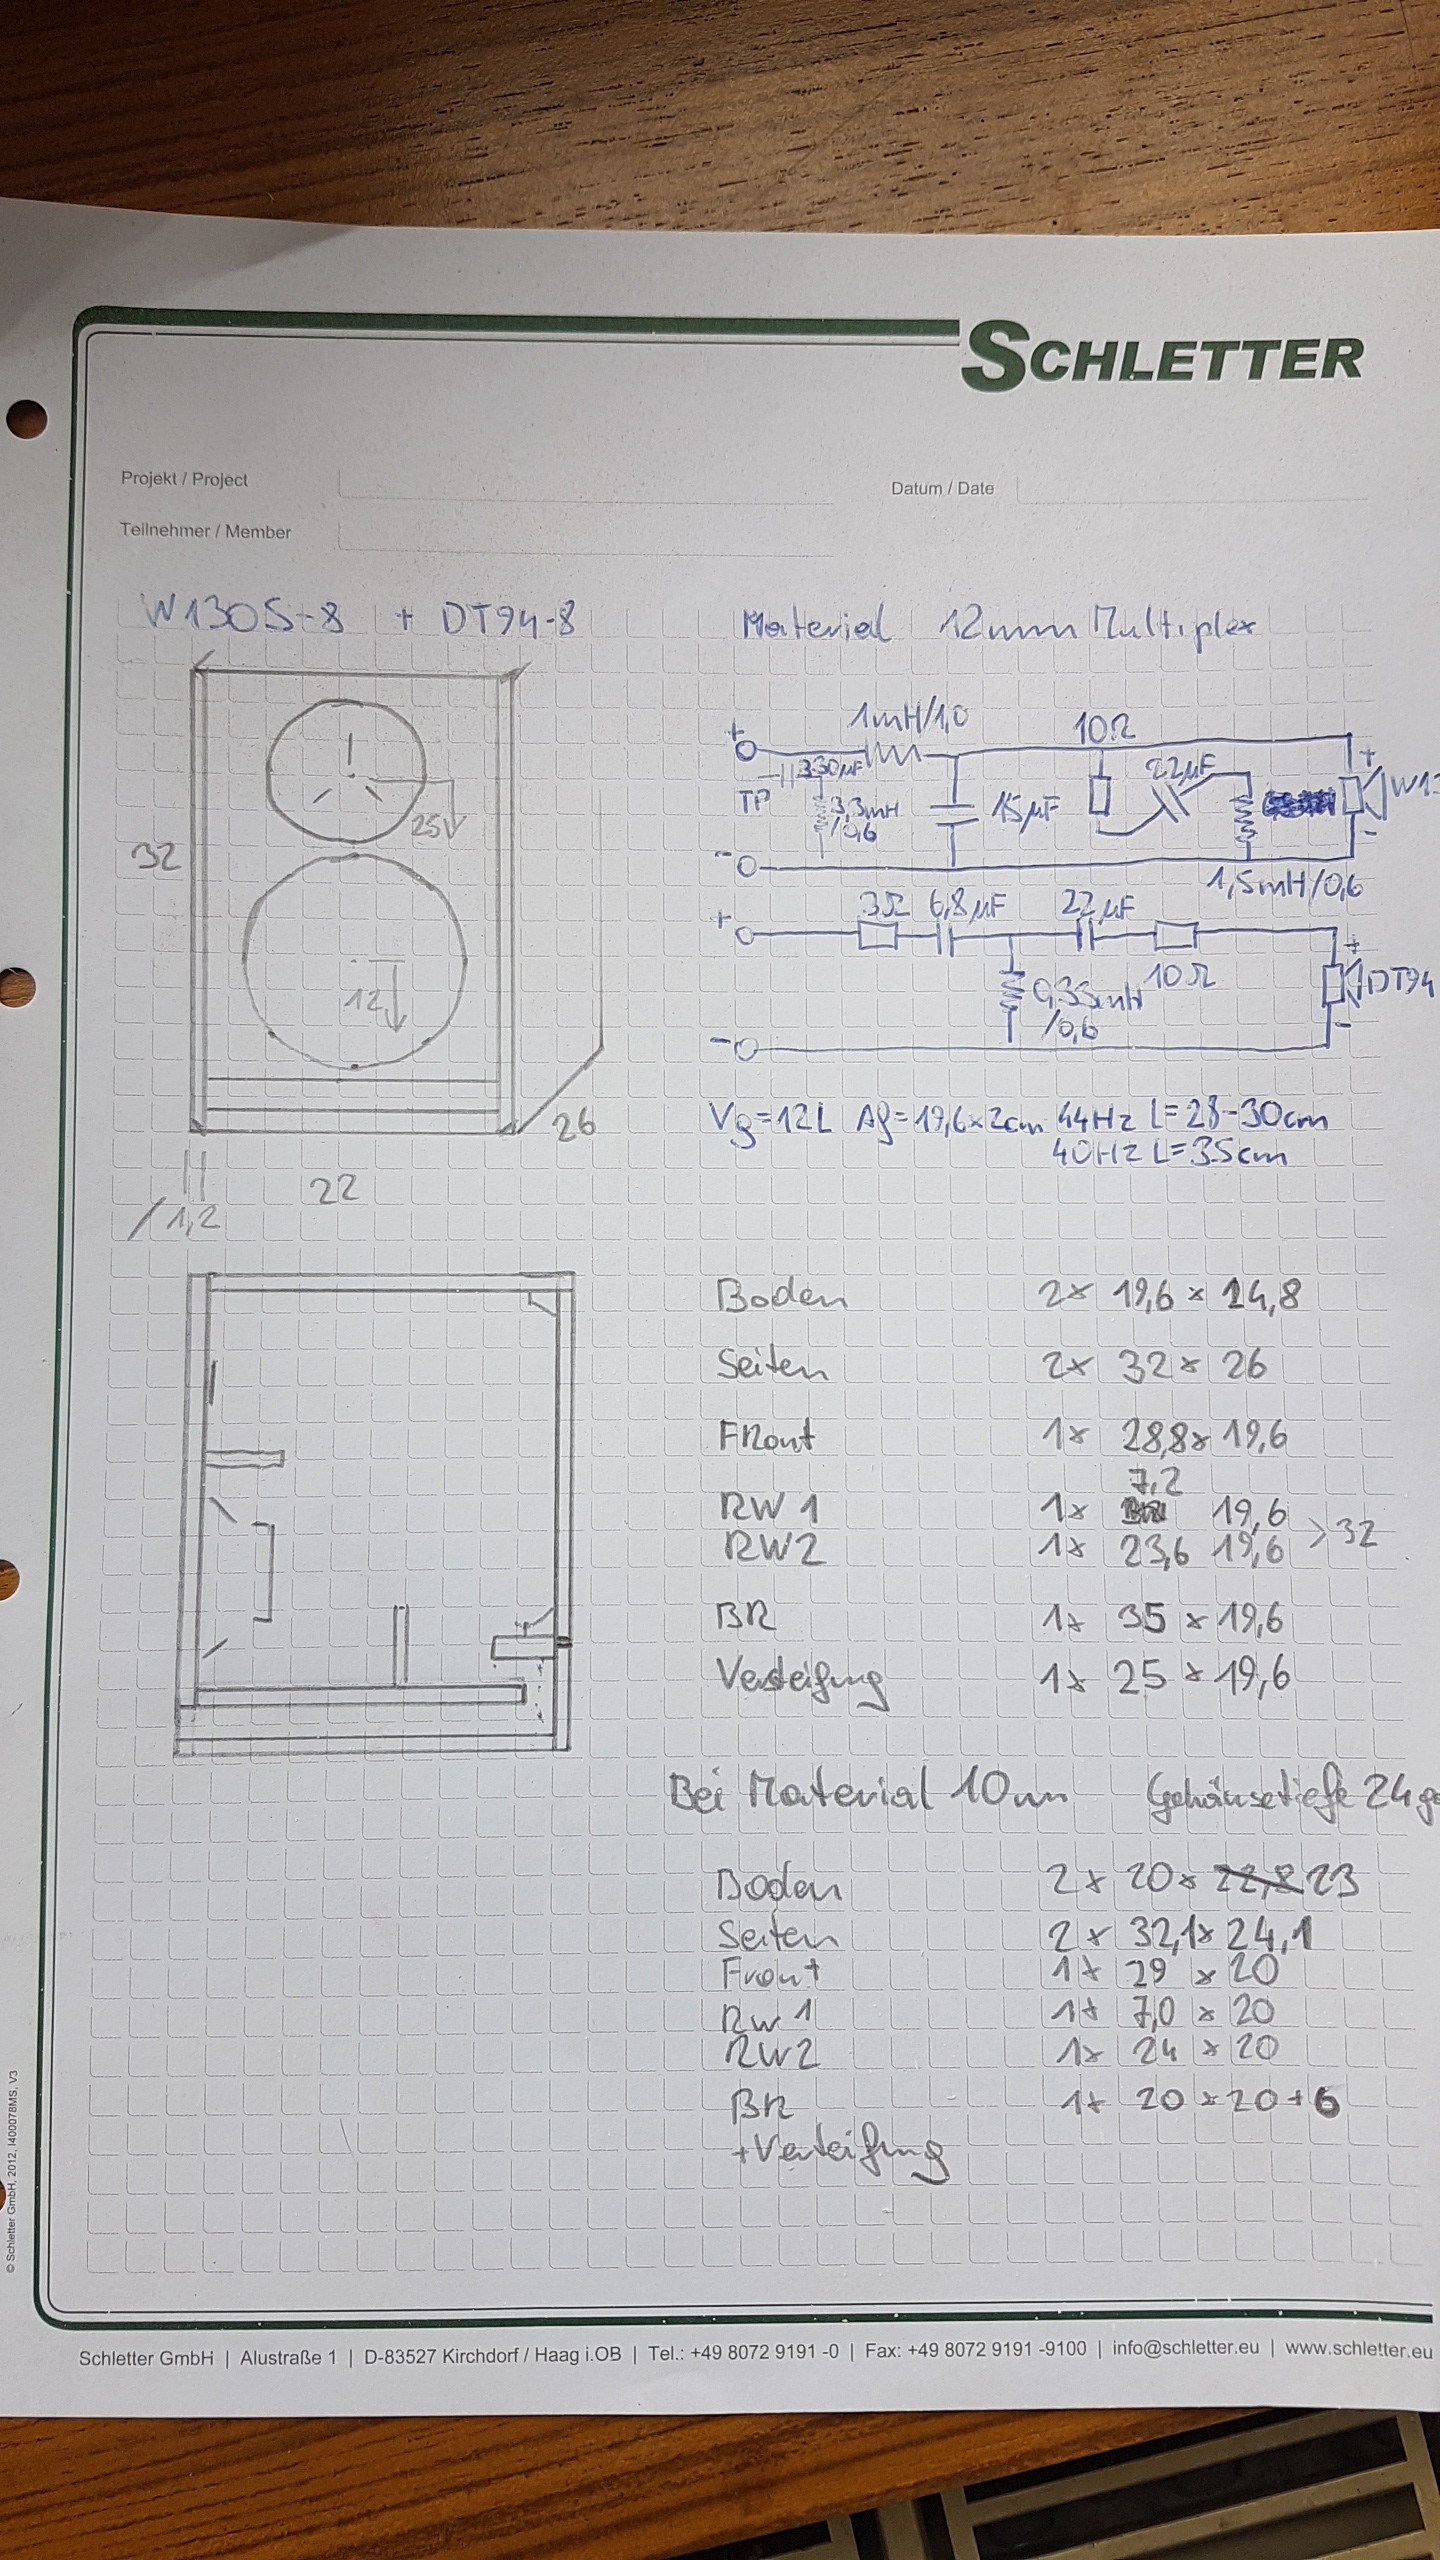 SCHLETTER
Projekt / Project
Datum / Date
Teilnehmer / Member
W130S-8 + DT94-8
Material 12mm Multiplex
1mH/1,0
10Ω
+
330µF
22µF
+
TP
3,3mH
/0,6
15µF
W13
-
-
1,5mH/0,6
3Ω 6,8µF 22µF
+
+
0,33mH
/0,6
10Ω
DT94
-
-
25
32
12
26
22
/ 1,2
Vg=12L Ag=19,6x2cm 44Hz L=28-30cm
40Hz L=35cm
Boden 2x 19,6 x 24,8
Seiten 2x 32 x 26
Front 1x 28,8x 19,6
7,2
RW 1 1x 19,6
RW2 1x 23,6 19,6 > 32
BR 1x 35 x 19,6
Versteifung 1x 25 x 19,6
Bei Material 10mm Gehäusetiefe 24
Boden 2x 20x 22,8 23
Seiten 2x 32,1x 24,1
Front 1x 29 x 20
RW 1 1x 7,0 x 20
RW2 1x 24 x 20
BR 1x 20 x 20 + 6
+Versteifung
© Schletter GmbH, 2012, I400078MS, V3
Schletter GmbH | Alustraße 1 | D-83527 Kirchdorf / Haag i.OB | Tel.: +49 8072 9191 -0 | Fax: +49 8072 9191 -9100 | info@schletter.eu | www.schletter.eu